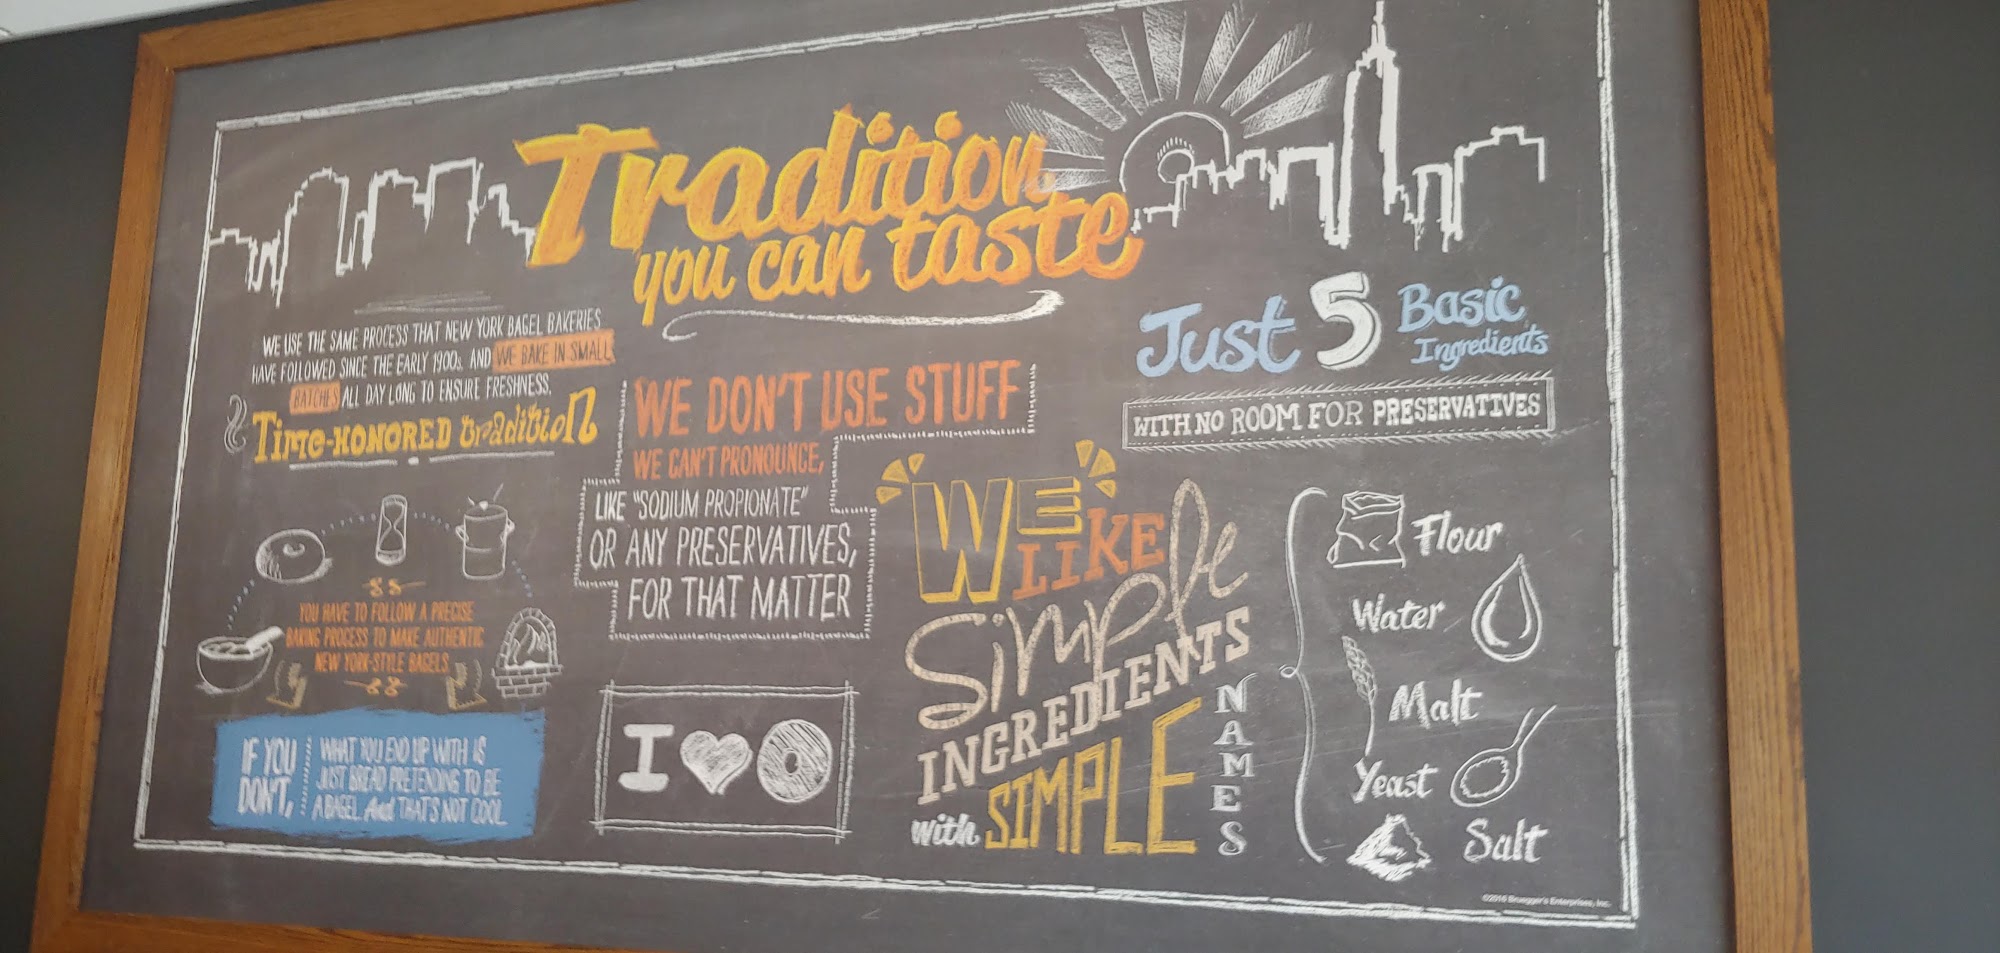 Tradition
you can taste
WE USE THE SAME PROCESS THAT NEW YORK BAGEL BAKERIES
HAVE FOLLOWED SINCE THE EARLY 1900s. AND WE BAKE IN SMALL
BATCHES ALL DAY LONG TO ENSURE FRESHNESS.
TIME-HONORED tradition
YOU HAVE TO FOLLOW A PRECISE
BAKING PROCESS TO MAKE AUTHENTIC
NEW YORK-STYLE BAGELS
IF YOU
DON'T,
WHAT YOU END UP WITH IS
JUST BREAD PRETENDING TO BE
A BAGEL. And THAT'S NOT COOL.
WE DON'T USE STUFF
WE CAN'T PRONOUNCE,
LIKE "SODIUM PROPIONATE"
OR ANY PRESERVATIVES,
FOR THAT MATTER
I
WE
LIKE
Simple
INGREDIENTS
with SIMPLE
NAMES
Just 5 Basic
Ingredients
WITH NO ROOM FOR PRESERVATIVES
Flour
Water
Malt
Yeast
Salt
©2016 Bruegger's Enterprises, Inc.